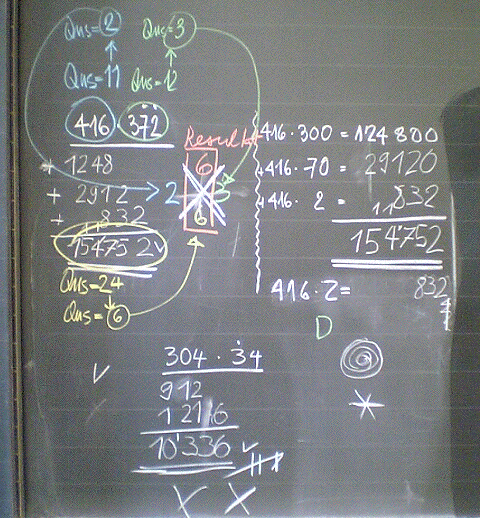 Qns=2 Qns=3
Qns=11 Qns=12
416 · 372
Result
+ 1248
+ 2912
+ 832
154752
Qns=24
Qns=6
6
2 3
6
416 · 300 = 124 800
+416 · 70 = 29120
+416 · 2 = 832
154'752
416 · 2 = 832
D
304 · 34
912
1216
10'336